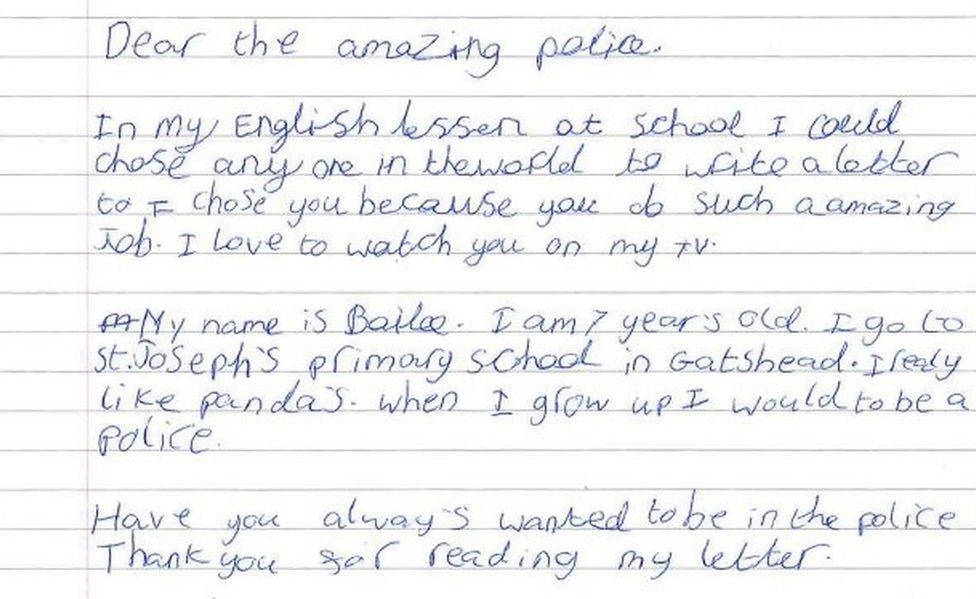 Dear the amazing police.
In my English lessen at school I could
chose any one in the world to write a letter
to I chose you because you do such a amazing
Job. I love to watch you on my tv.
My name is Bailee. I am 7 year's old. I go to
St. Joseph's primary school in Gatshead. I realy
like panda's. when I grow up I would to be a
police.
Have you alway's wanted to be in the police
Thank you for reading my letter.